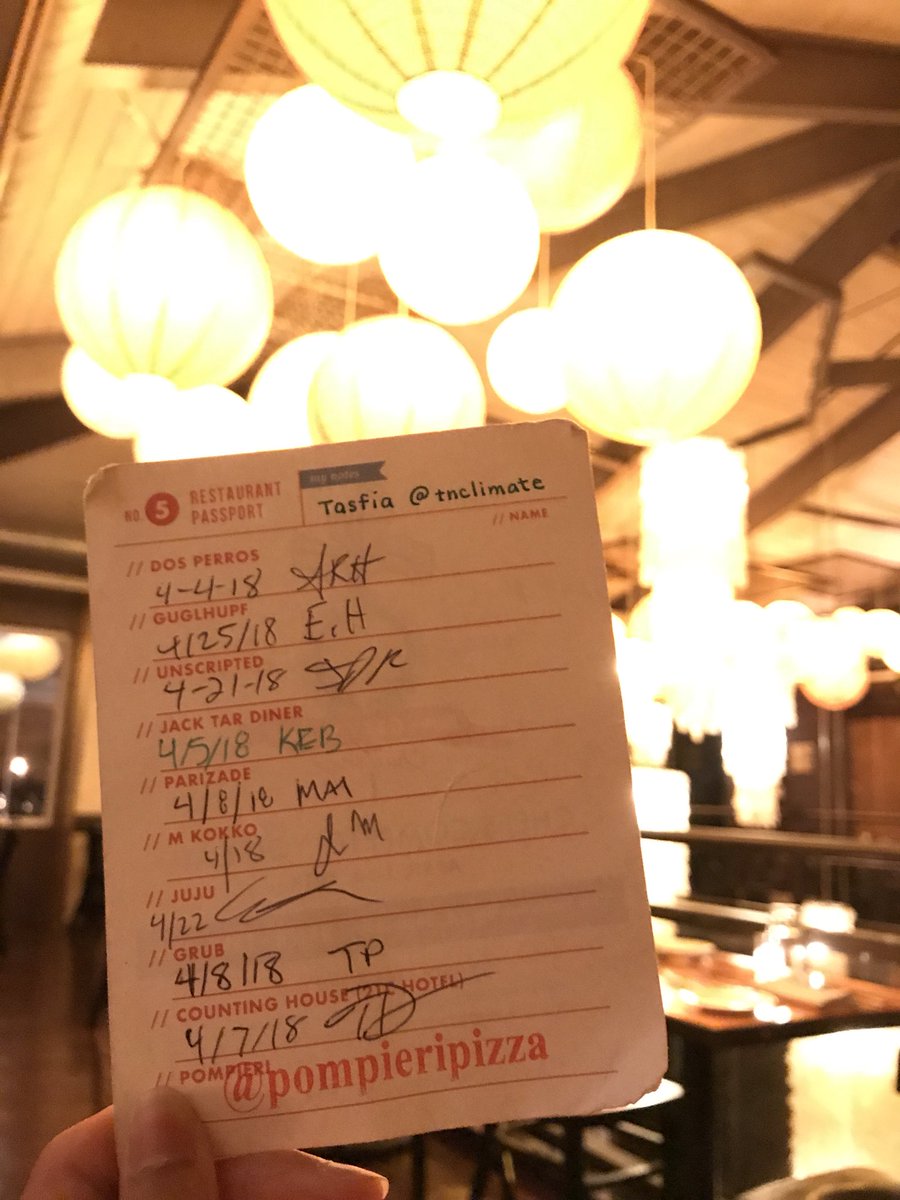 my notes
NO. 5 RESTAURANT PASSPORT
Tasfia @tnclimate
// NAME
// DOS PERROS
4-4-18 AKH
// GUGLHUPF
4/25/18 E.H
// UNSCRIPTED
4-21-18
// JACK TAR DINER
4/5/18 KEB
// PARIZADE
4/8/18 MAI
// M KOKKO
4/18
// JUJU
4/22
// GRUB
4/8/18 TP
// COUNTING HOUSE (21C HOTEL)
4/7/18
// POMPIERI
@pompieripizza